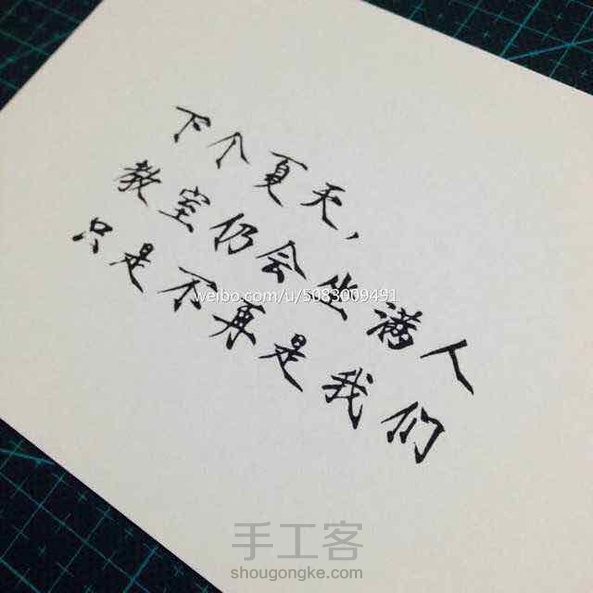 下个夏天，
教室仍会坐满人
只是不再是我们
weibo.com/u/5083009491
手工客
shougongke.com